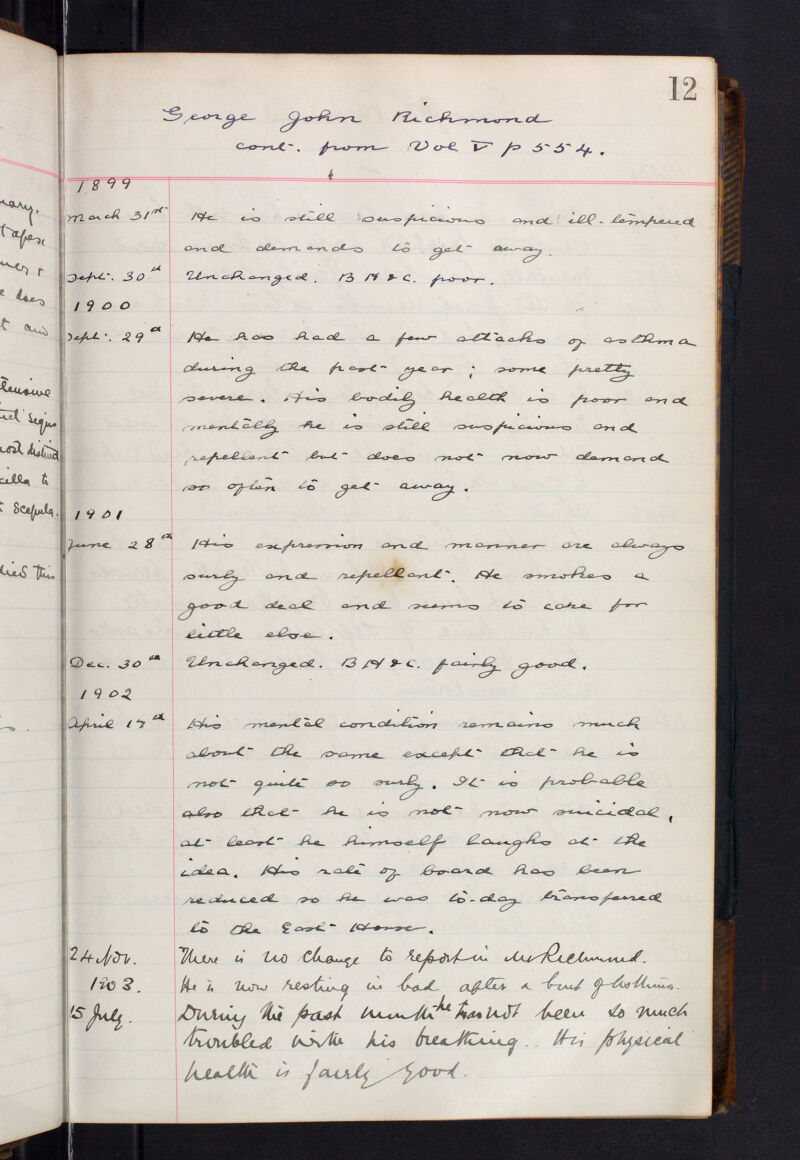 12
George John Richmond
cont. from Vol V p 554.
1899
March 31st He is still suspicious and ill-tempered
and demands to get away.
Sept. 30th Unchanged. B H & C. poor.
1900
Sept. 29th He has had a few attacks of asthma
during the past year; some pretty
severe. His bodily health is poor and
mentally he is still suspicious and
repellent but does not now demand
so often to get away.
1901
June 28th His expression and manner are always
surly and repellant. He smokes a
good deal and seems to care for
little else.
Dec. 30th Unchanged. B H & C. fairly good.
1902
April 17th His mental condition remains much
about the same except that he is
not quite so surly. It is probable
also that he is not now suicidal,
at least he himself laughs at the
idea. His rate of board has been
reduced so he was to-day transferred
to the East House.
24 Nov. There is no change to report in Mr Richmond.
He is now resting in bed after a bout of asthma.
1903.
15 July. During the past month he has not been so much
troubled with his breathing. His physical
health is fairly good.